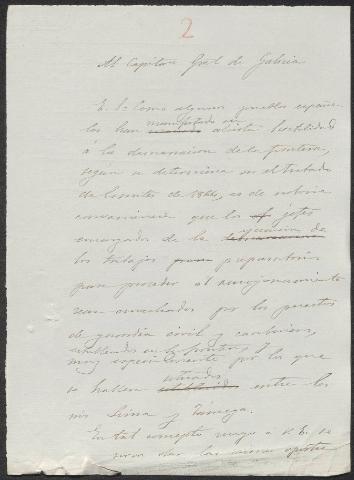 2
Al Capitan Gral de Galicia
E. S. Como algunos pueblos españo-
les han manifestado su abierta hostilidad
á la demarcacion de la frontera,
segun se determina en el tratado
de limites de 1864, es de notoria
conveniencia que los jefes
encargados de la ejecucion de
los trabajos preparatorios
para proceder al amojonamiento
sean auxiliados por los puestos
de guardia civil y carabineros,
establecidos en la frontera, y
muy especialmente por los que
se hallen situados entre los
rios Limia y Támega.
En tal concepto ruego a V. E. se
sirva dar las